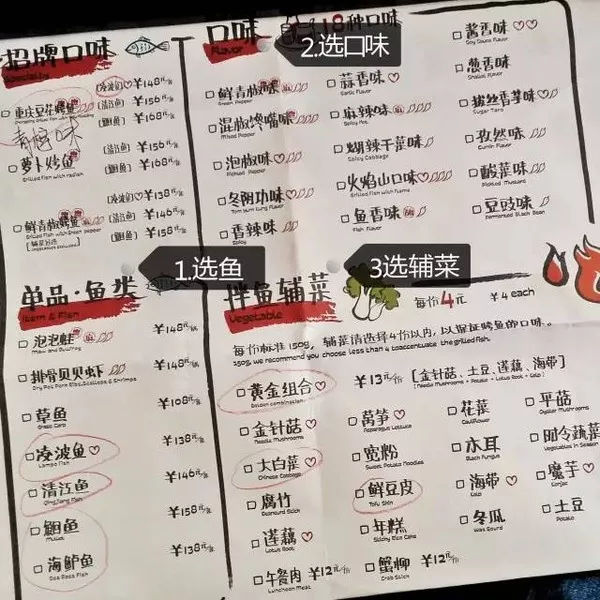 招牌口味
Specialty
(凌波鱼)♡ ¥148元/份
□重庆豆花烤鱼 (清江鱼) ¥156元/份
(鮰鱼) ¥168元/份
青椒味
(清江鱼) ¥156元/份
□萝卜炒鱼 (鮰鱼) ¥168元/份
Grilled Fish with radish
(凌波鱼)♡ ¥138元/份
□鲜青椒烤鱼 (清江鱼) ¥146元/份
Grilled Fish with Green pepper
(鮰鱼) ¥158元/份
口味 18种口味
Flavor
2.选口味
□鲜青椒味
Green Pepper
□混椒馋嘴味
□泡椒味♡
Pickled Pepper
□冬阴功味
Tom Yum Kung Flavor
□香辣味
Spicy
□蒜香味♡
Garlic Flavor
□麻辣味
Spicy Hot
□糊辣干菜味
Spicy Cabbage
□火焰山口味♡
Grilled Fish with Flame
□鱼香味
Fish Flavor
□酱香味
Soy Sauce Flavor
□葱香味
Shallot Flavor
□拔丝香芋味♡
Sugar Taro
□孜然味
Cumin Flavor
□酸菜味
Pickled Mustard
□豆豉味
Fermented Black Bean
1.选鱼
单品·鱼类
Item & Fish
□泡泡蛙 ¥148元/锅
Miaow and Bullfrog
□排骨贝贝虾 ¥148元/份
Dry Pot Pork Ribs,Scallops & Shrimps
□草鱼 ¥108元/份
Grass Carp
□凌波鱼♡ ¥138元/份
Lampo Fish
□清江鱼 ¥146元/份
Qingjiang Fish
□鮰鱼 ¥158元/份
Mullet
□海鲈鱼 ¥138元/份
Sea Bass Fish
3选辅菜
拌鱼辅菜 每份4元 ¥4 each
Vegetable
每份标准150g, 辅菜请选择4份以内,以保证烤鱼的口味。
150g,we recommend you choose less than 4 toaccentuate the grilled fish.
□黄金组合♡ ¥13元/份 [金针菇、土豆、莲藕、海带]
Golden combination [Needle Mushrooms + Potato + Lotus Root + Kelp]
□金针菇
Needle Mushrooms
□大白菜♡
Chinese Cabbage
□腐竹
Beancurd Stick
□莲藕
Lotus Root
□午餐肉 ¥12元/份
Luncheon Meat
□莴笋♡
Asparagus Lettuce
□宽粉
Sweet Potato Noodles
□鲜豆皮
Tofu Skin
□年糕
Sticky Rice Cake
□蟹柳 ¥12元/份
Crab Stick
□花菜
Cauliflower
□木耳
Black Fungus
□海带♡
Kelp
□冬瓜
Wax Gourd
□平菇
Oyster Mushrooms
□时令蔬菜
Vegetables in Season
□魔芋♡
Konjac
□土豆
Potato